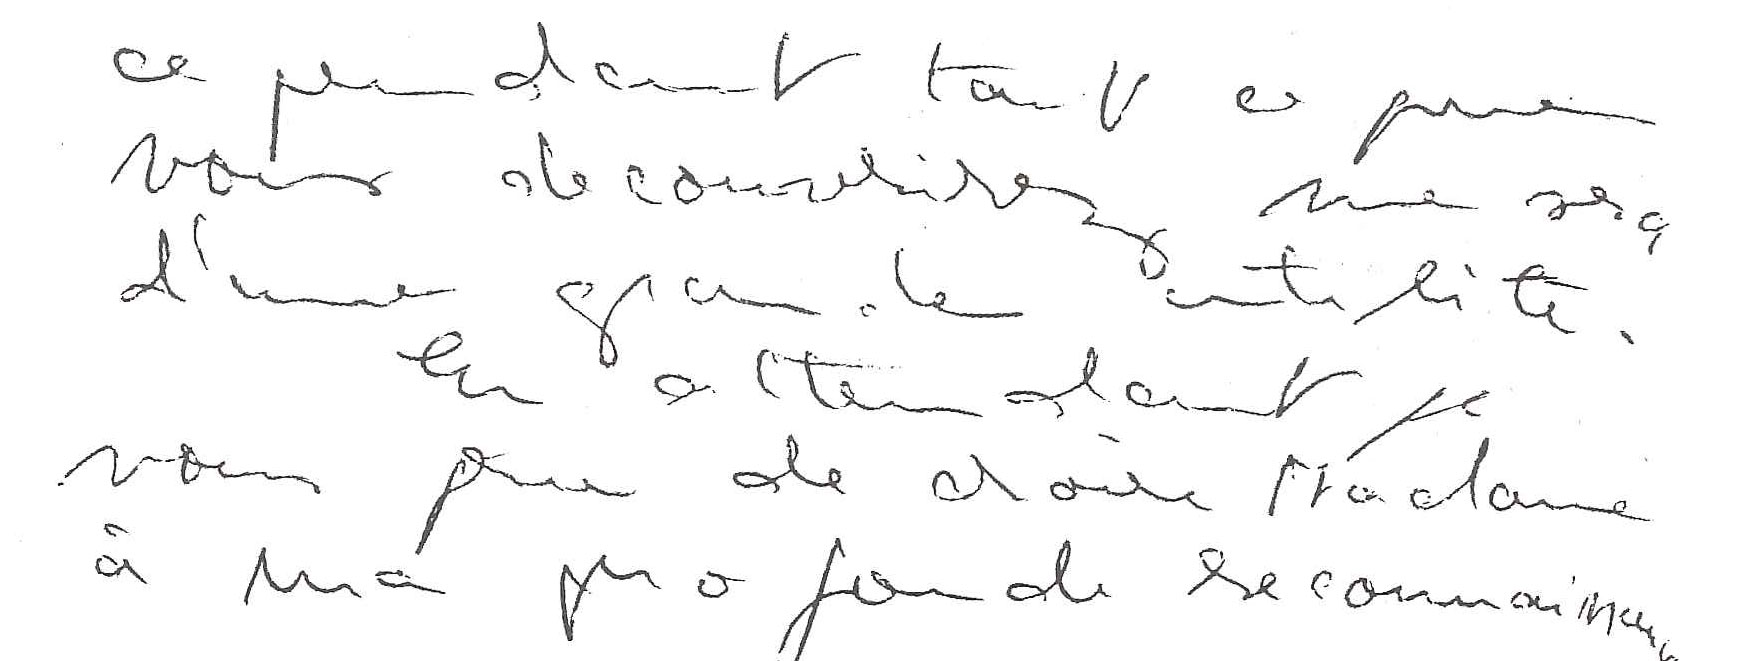 ce pendant tout ce que
vous decouvrirez me sera
d'une grande utilité.
En attendant je
vous prie de croire Madame
à ma profonde reconnaissance